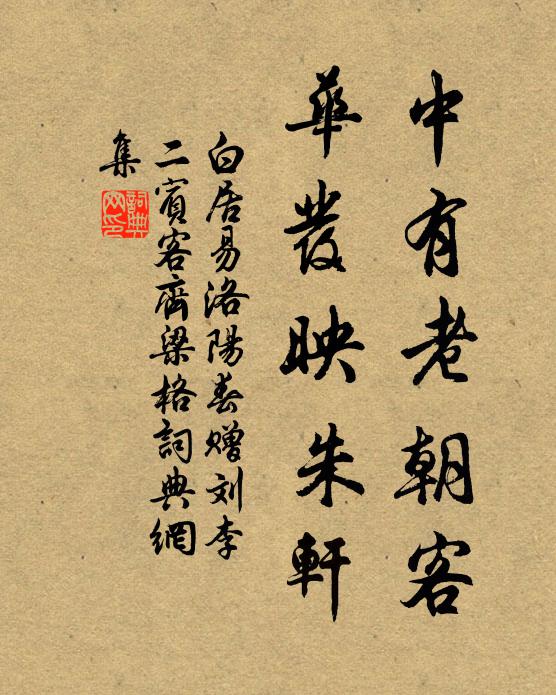 中有老朝客
華發映朱軒
白居易洛陽春赠刘李
二賓客齊梁格詞典網
集
詞典
网印